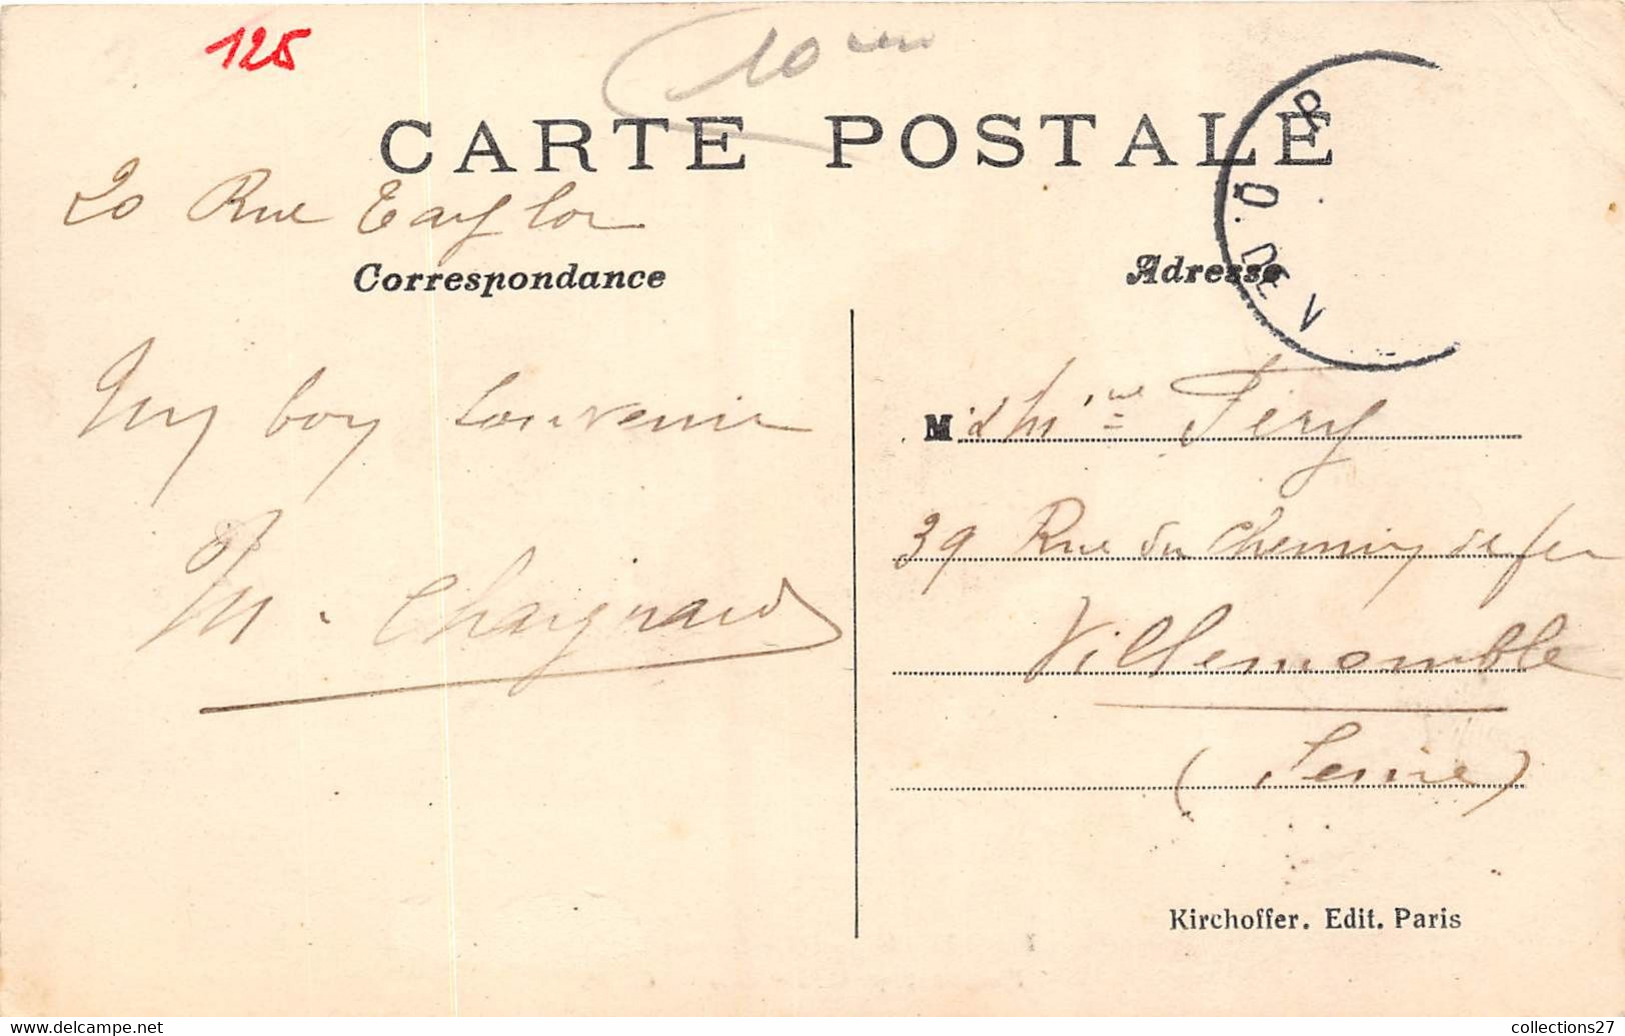 125
10
CARTE POSTALE
20 Rue Taylor
Correspondance
Adresse
R. D. DE V
Un bon souvenir
M. Chaignaud
M & Mme Fery
39 Rue du Chemin de fer
Villemomble
(Seine)
Kirchoffer. Edit. Paris
collections27